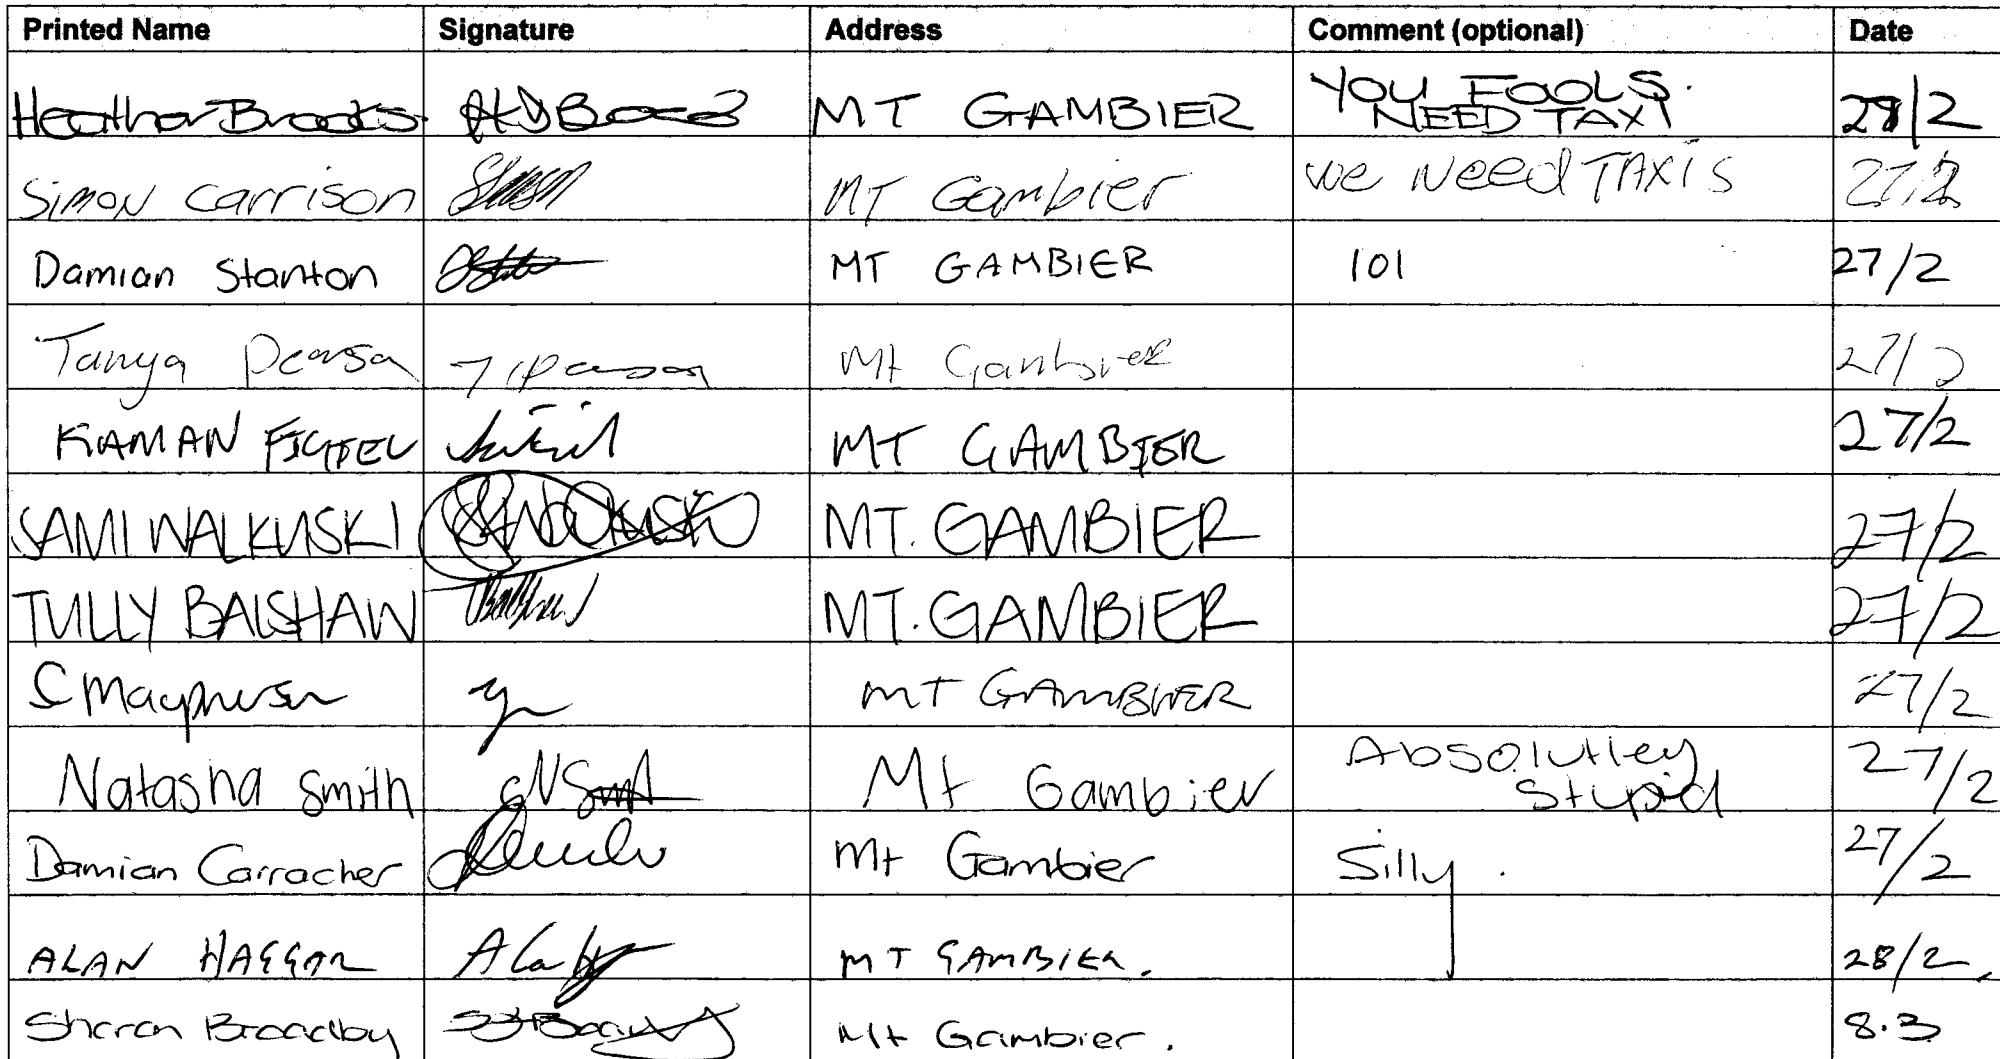 Printed Name Signature Address Comment (optional) Date
Heather Brooks MT GAMBIER YOU FOOLS.
NEED TAXI 28/2
Simon Carrison MT Gambier we Need TAXIS 27/2
Damian Stanton MT GAMBIER 101 27/2
Tanya Mt Gambier 27/2
MT GAMBIER 27/2
SAMI WALKUSKI MT. GAMBIER 27/2
TULLY BALSHAW MT. GAMBIER 27/2
MT GAMBIER 27/2
Natasha Smith Mt Gambier Absolutley
Stupid 27/2
Damian Carracher Mt Gambier Silly. 27/2
ALAN HAGGAR MT GAMBIER. 28/2.
Sharon Broadby Mt Gambier. 8.3